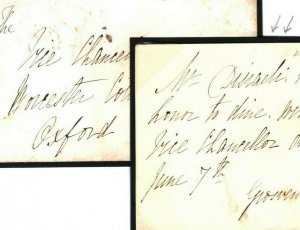 The
Vice Chancel
Worcester Col
Oxford
Mr Disraeli
honor to dine
Vice Chancellor
June 7th
Grosven